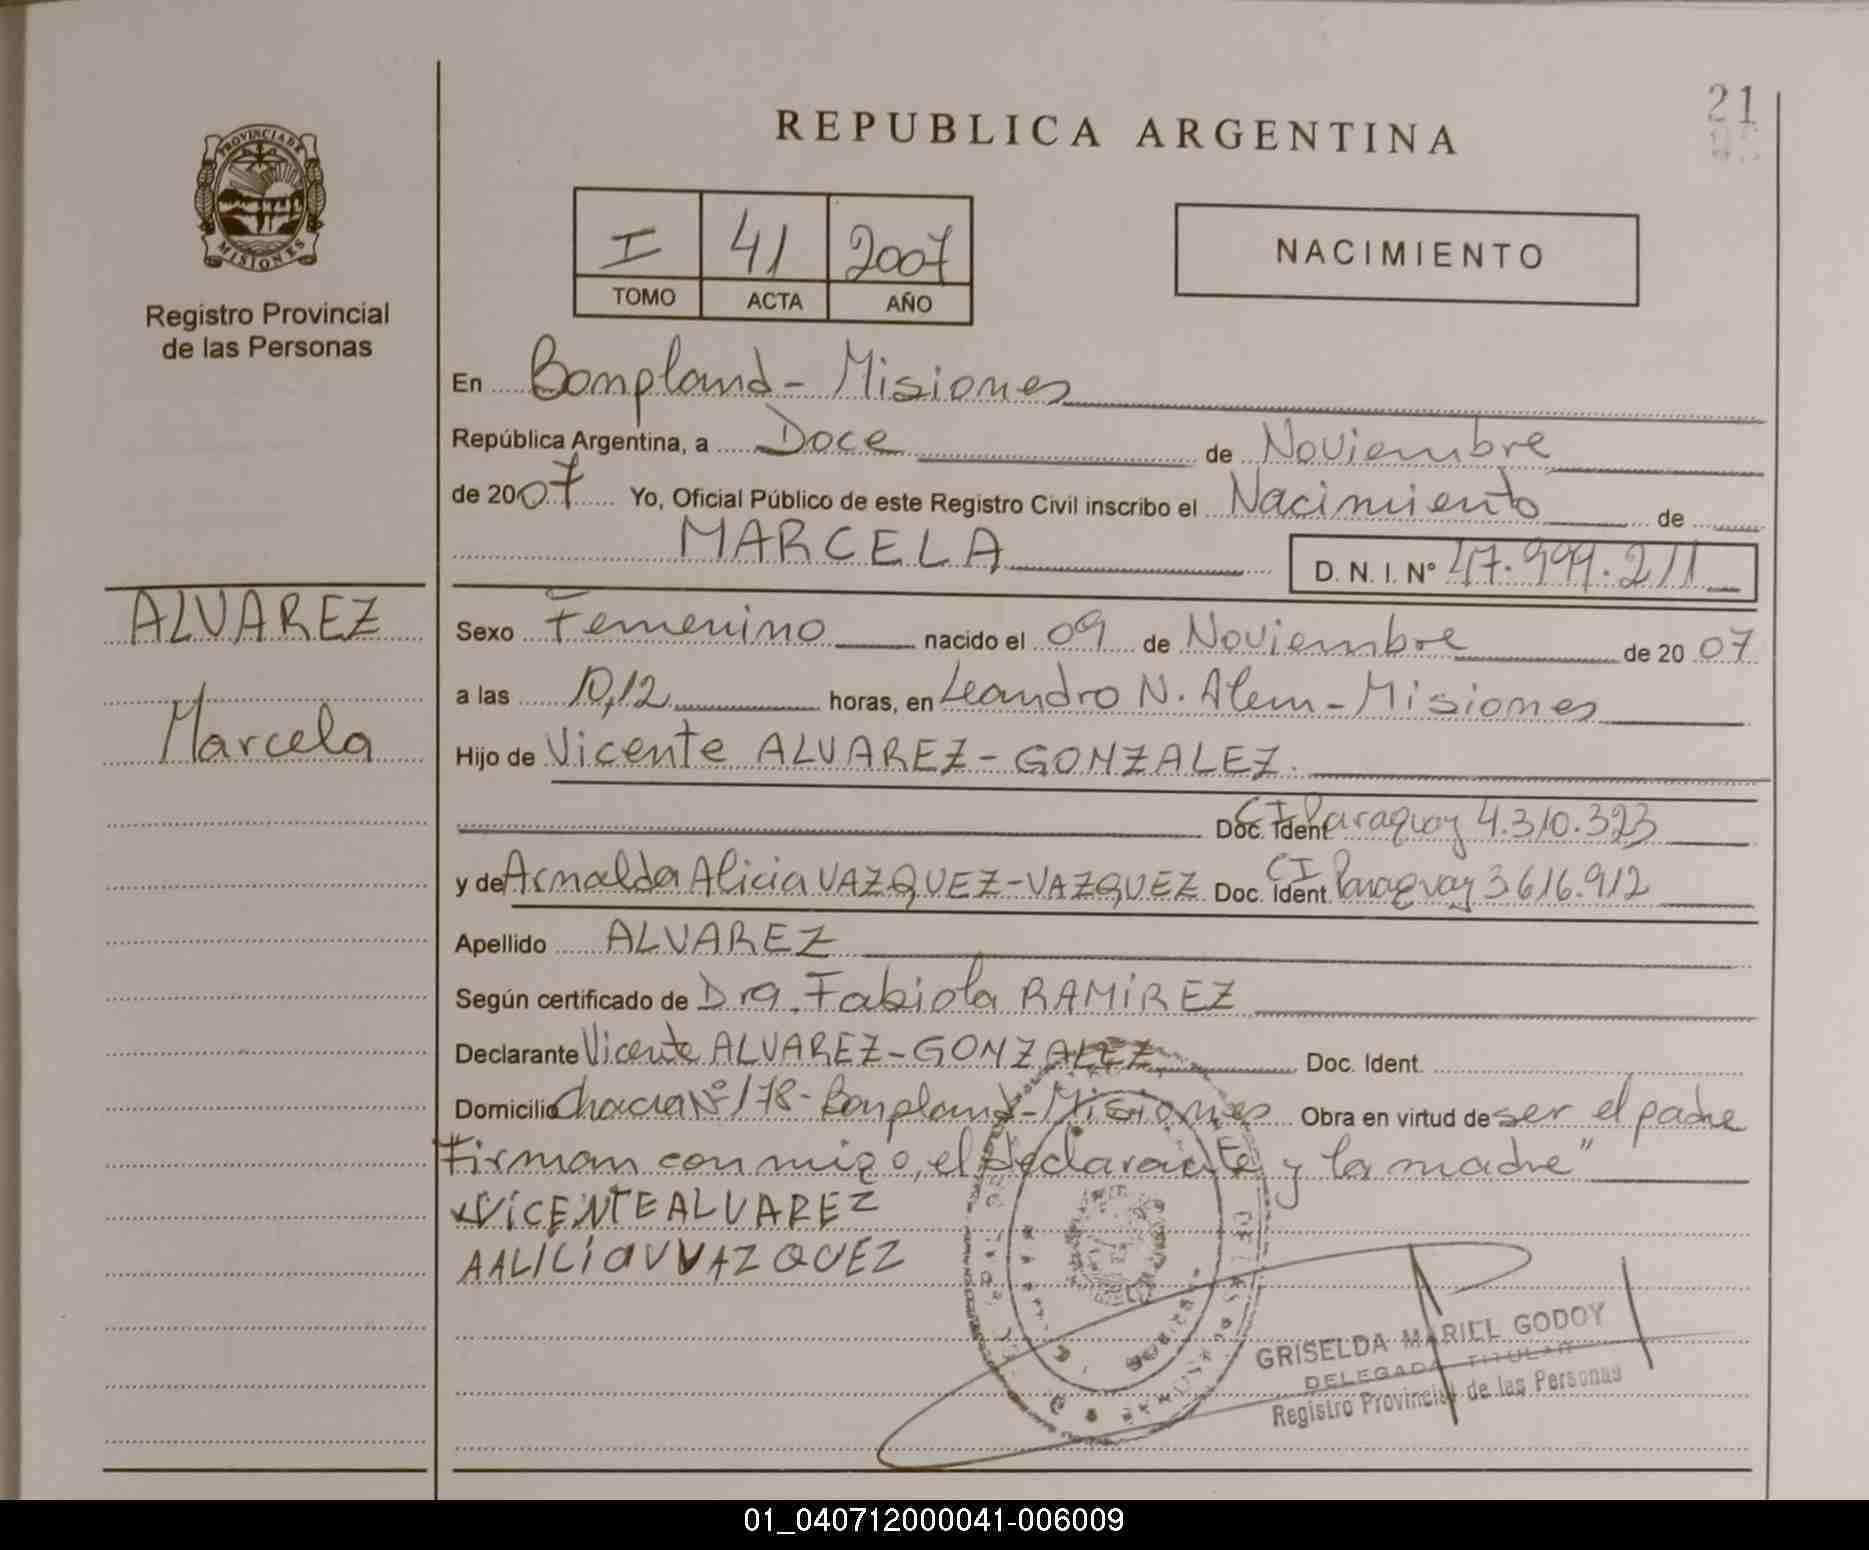 21
REPUBLICA ARGENTINA
PROVINCIA DE
MISIONES
Registro Provincial
de las Personas
I 41 2007
TOMO ACTA AÑO
NACIMIENTO
En Bompland - Misiones
República Argentina, a Doce de Noviembre
de 2007 Yo, Oficial Público de este Registro Civil inscribo el Nacimiento de
MARCELA D. N. I. Nº 47.999.211
ALVAREZ
Marcela
Sexo Femenino nacido el 09 de Noviembre de 2007
a las 10,12 horas, en Leandro N. Alem - Misiones
Hijo de Vicente ALVAREZ - GONZALEZ.
Doc. Ident CI Paraguay 4.310.323
y de Arnalda Alicia VAZQUEZ - VAZQUEZ Doc. Ident. CI Paraguay 3616.912
Apellido ALVAREZ
Según certificado de Dra. Fabiola RAMIREZ
Declarante Vicente ALVAREZ - GONZALEZ Doc. Ident.
Domicilio Chacra Nº 178 - Bompland - Misiones Obra en virtud de ser el padre
Firman conmigo, el declarante y la madre"
VICENTE ALVAREZ
AALICIA VVAZQUEZ
GRISELDA MARIEL GODOY
DELEGADA TITULAR
Registro Provincial de las Personas
01_040712000041-006009